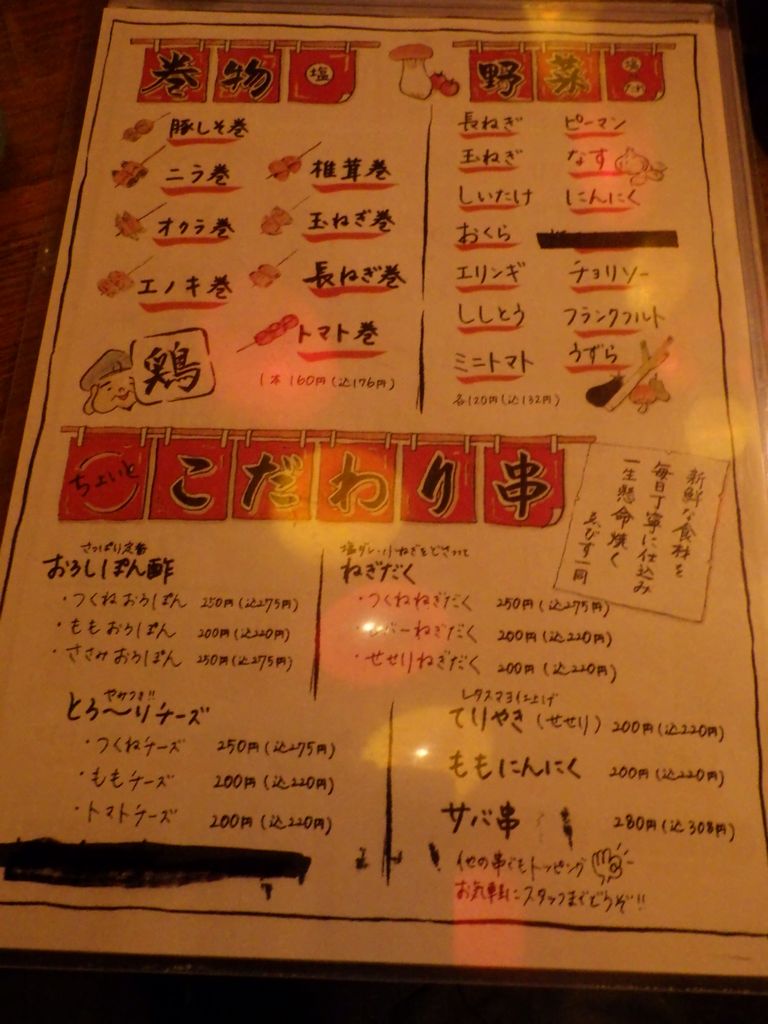 巻物 塩
豚しそ巻
ニラ巻
椎茸巻
オクラ巻
玉ねぎ巻
エノキ巻
長ねぎ巻
トマト巻
1本 160円(込176円)
鶏
野菜 塩
長ねぎ
ピーマン
玉ねぎ
なす
しいたけ
にんにく
おくら
エリンギ
チョリソー
ししとう
フランクフルト
ミニトマト
うずら
各120円(込132円)
ちょいと こだわり串
新鮮な食材を
毎日丁寧に仕込み
一生懸命焼く
ゑびす一同
さっぱり定番
おろしぽん酢
・つくねおろぽん 250円(込275円)
・ももおろぽん 200円(込220円)
・ささみおろぽん 250円(込275円)
塩ダレ・小ねぎをどさっと
ねぎだく
・つくねねぎだく 250円(込275円)
・レバーねぎだく 200円(込220円)
・せせりねぎだく 200円(込220円)
やみつき!!
とろ〜りチーズ
・つくねチーズ 250円(込275円)
・ももチーズ 200円(込220円)
・トマトチーズ 200円(込220円)
レタスマヨ仕上げ
てりやき(せせり) 200円(込220円)
ももにんにく 200円(込220円)
サバ串 280円(込308円)
他の串でもトッピング
お気軽にスタッフまでどうぞ!!